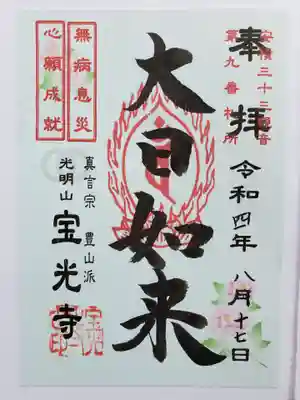 安積三十三観音
第九番札所
奉拝
令和四年八月十七日
大日如来
無病息災
心願成就
真言宗 豊山派
光明山
宝光寺